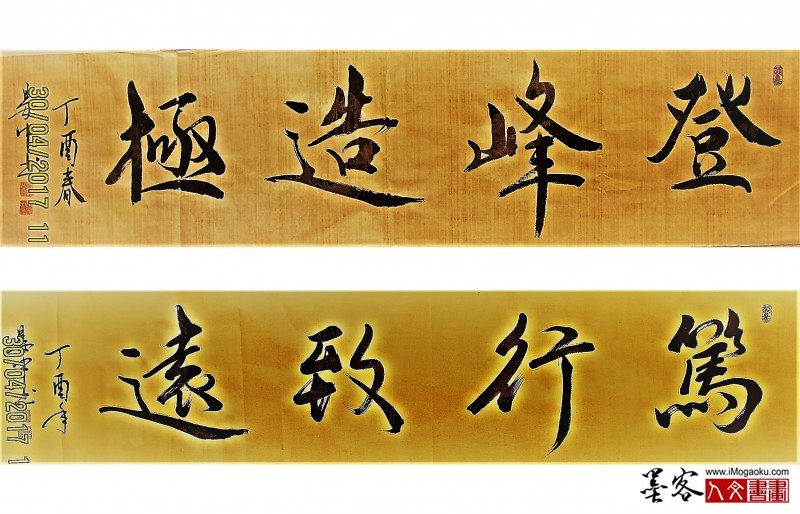 登峰造極
丁酉春
30/04/2017 11
篤行致遠
丁酉年
30/04/2017 1
墨客
www.iMogaoku.com
人文書畫